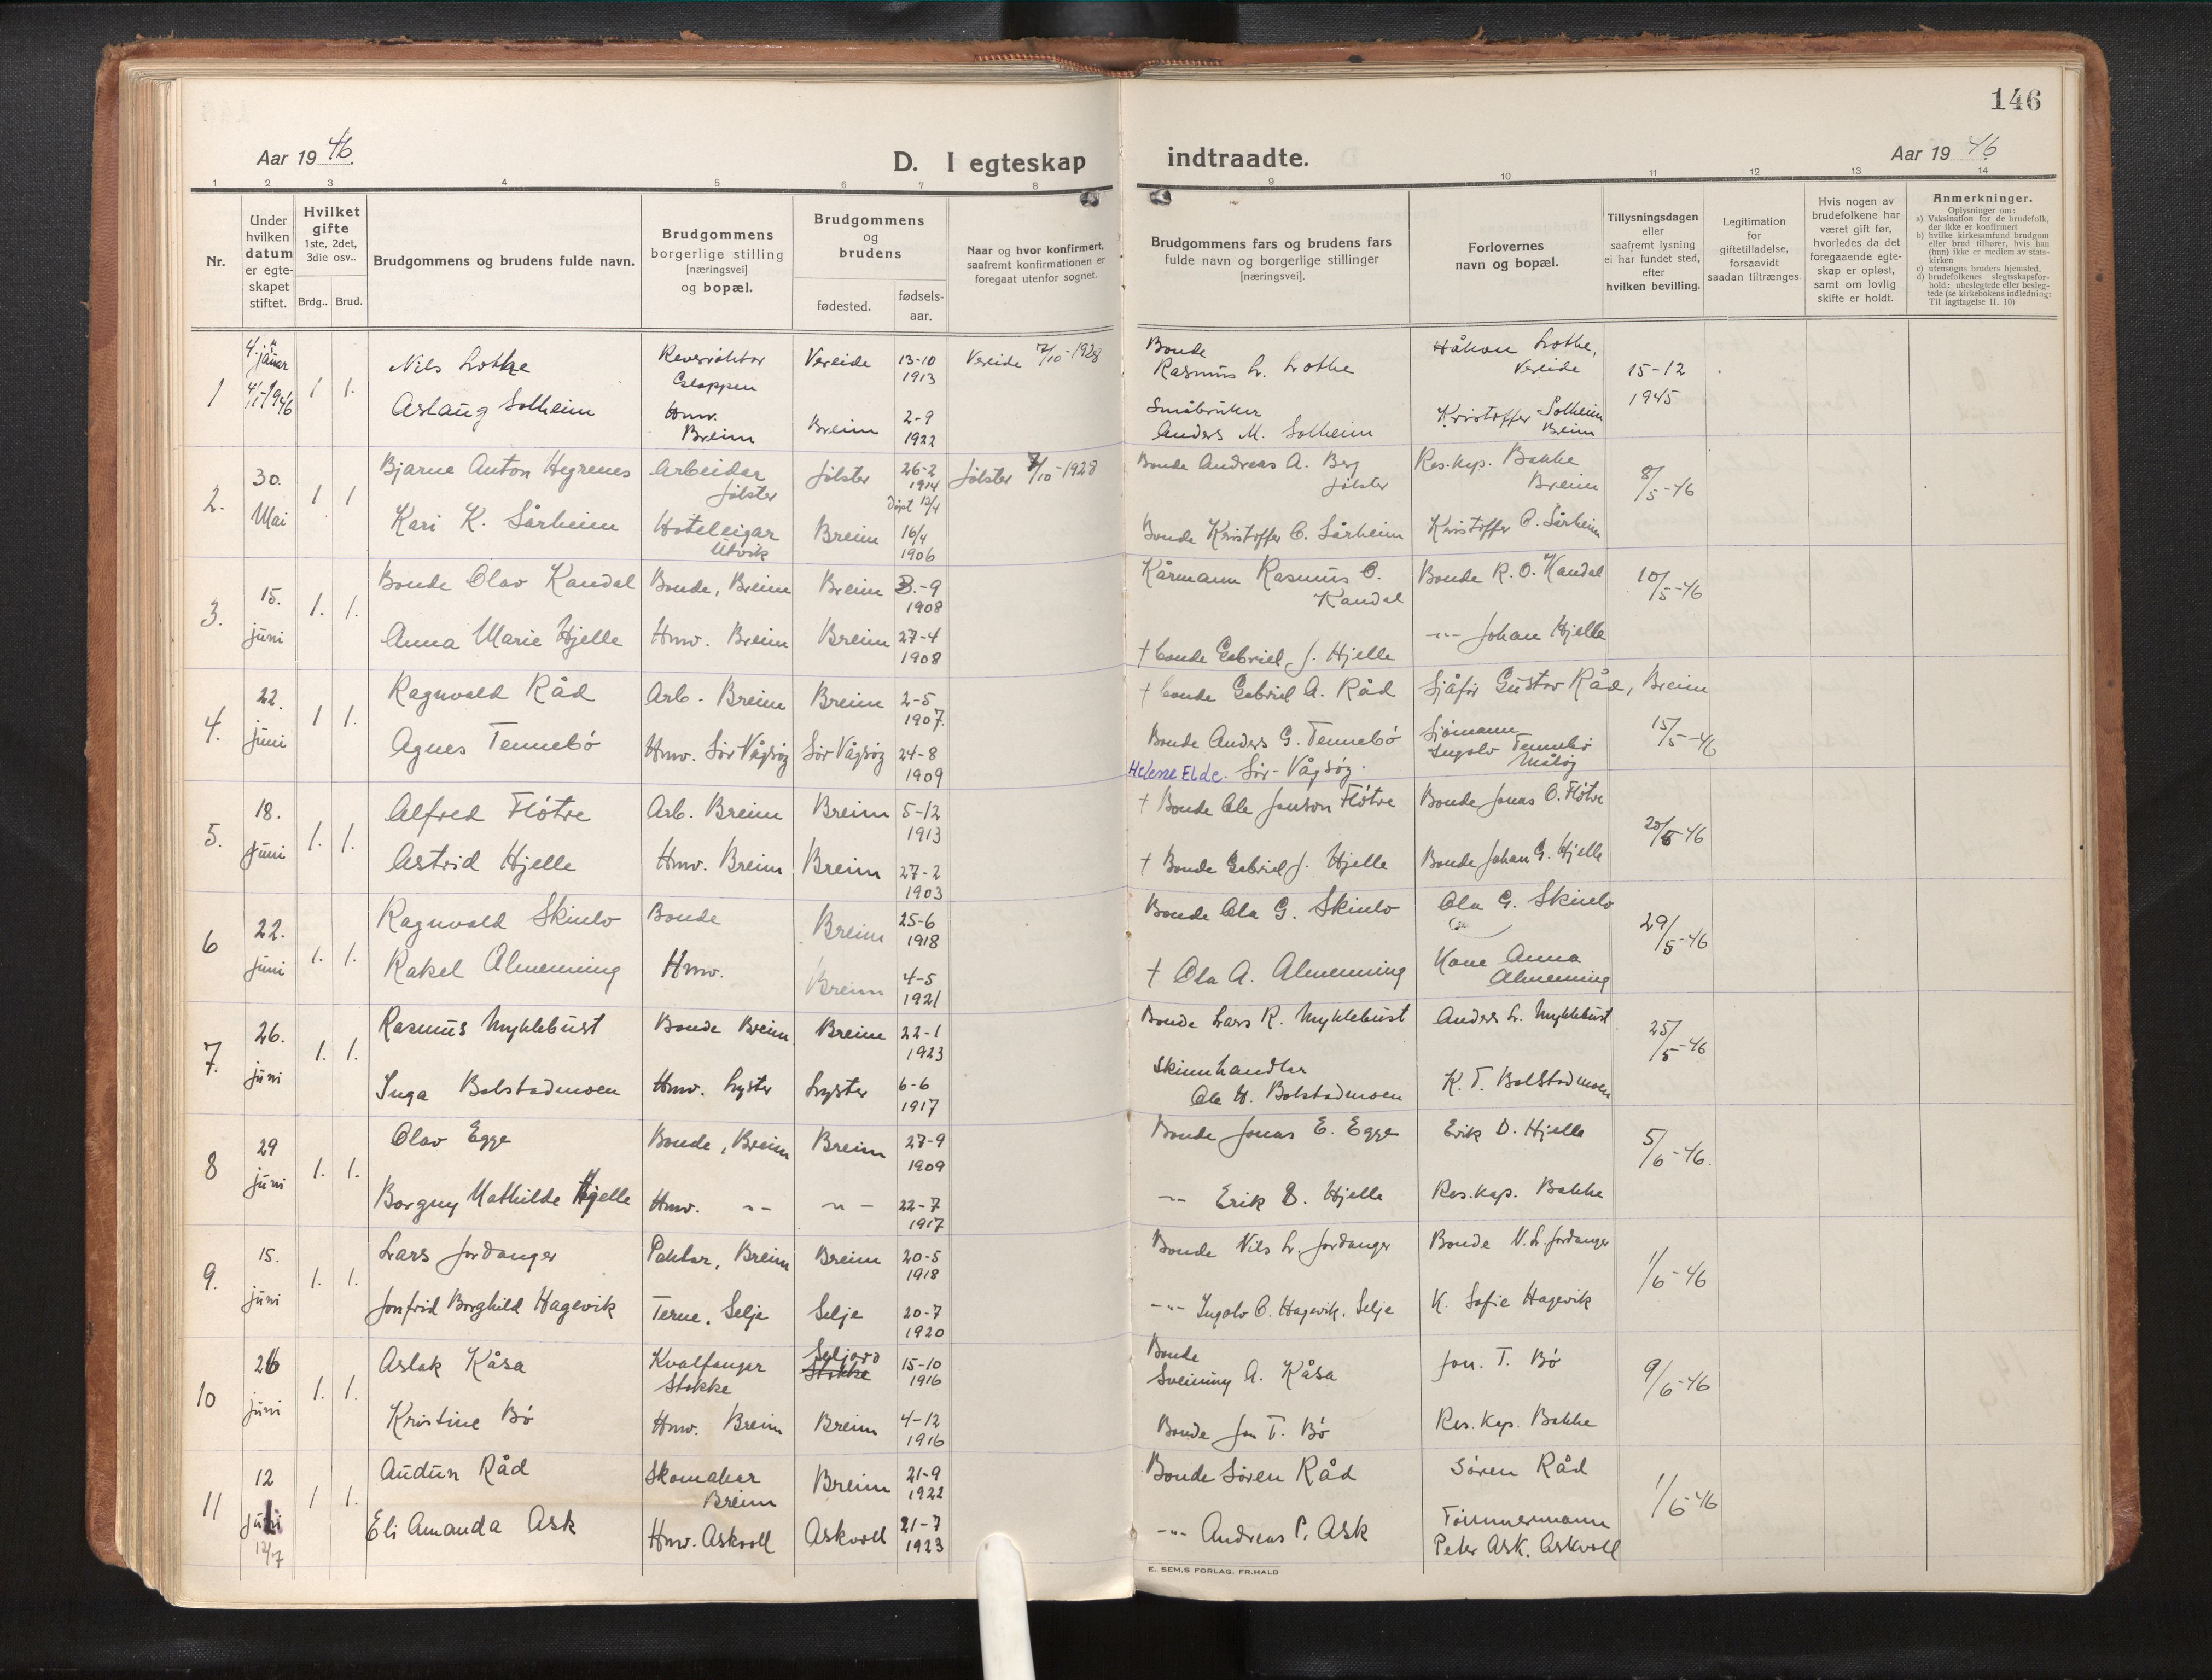 146
Aar 1946.
D. I egteskap indtraadte.
Aar 1946
1 2 3 4 5 6 7 8 9 10 11 12 13 14
Nr.
Under hvilken datum er egte-skapet stiftet.
Hvilket gifte
1ste, 2det, 3die osv..
Brdg.. Brud.
Brudgommens og brudens fulde navn.
Brudgommens borgerlige stilling
[næringsvei]
og bopæl.
Brudgommens og brudens
fødested.
fødsels-aar.
Naar og hvor konfirmert, saafremt konfirmationen er foregaat utenfor sognet.
Brudgommens fars og brudens fars
fulde navn og borgerlige stillinger
[næringsvei].
Forlovernes
navn og bopæl.
Tillysningsdagen
eller
saafremt lysning
ei har fundet sted,
efter
hvilken bevilling.
Legitimation
for
giftetilladelse,
forsaavidt
saadan tiltrænges.
Hvis nogen av
brudefolkene har
været gift før,
hvorledes da det
foregaaende egte-
skap er opløst,
samt om lovlig
skifte er holdt.
Anmerkninger.
Oplysninger om:
a) Vaksination for de brudefolk, der ikke er konfirmert
b) hvilke kirkesamfund brudgom eller brud tilhører, hvis han (hun) ikke er medlem av stats-kirken
c) utensogns bruders hjemsted.
d) brudefolkenes slegtsskapsfor-hold: ubeslegtede eller besleg-tede (se kirkebokens indledning: Til iagttagelse II. 10)
1 4. januar 4/1-1946 1 1. Nils Lothe Gloppen Vereide 13-10 1913 Vereide 7/10-1928 Bonde Rasmus L. Lothe Håkon Lothe, Vereide 15-12 1945
Aslaug Solheim Hmv. Breim Breim 2-9 1922 Småbruker Anders M. Solheim Kristoffer Solheim Breim
2. 30. Mai 1 1 Bjarne Anton Hegrenes Arbeidar Jølster Jølster 26-2 1914 Døpt 12/4 Jølster 7/10-1928 Bonde Andreas A. Berg Jølster Res.kap. Bakke Breim 8/5-46
Kari K. Sårheim Hoteleigar Utvik Breim 16/4 1906 Bonde Kristoffer O. Sårheim Kristoffer O. Sårheim
3. 15. juni 1. 1. Bonde Olav Kandal Bonde, Breim Breim 3.-9 1908 Kårmann Rasmus O. Kandal Bonde R. O. Kandal 10/5-46
Anna Marie Hjelle Hmv. Breim Breim 27-4 1908 † bonde Gabriel J. Hjelle -"- Johan Hjelle
4. 22. juni 1 1. Ragnvald Råd Arb. Breim Breim 2-5 1907. † bonde Gabriel A. Råd Sjåfør Gustav Råd, Breim 15/5-46
Agnes Tennebø Hmv. Sør Vågsøy Sør Vågsøy 24-8 1909 Bonde Anders G. Tennebø Sør-Vågsøy. Sjømann Ingolv Tennebø Måløy
Helene Elde.
5. 18. juni 1. 1. Alfred Fløtre Arb. Breim Breim 5-12 1913 † Bonde Ole Jonson Fløtre Bonde Jonas O. Fløtre 20/5-46
Astrid Hjelle Hmv. Breim Breim 27-2 1903 † Bonde Gabriel J. Hjelle Bonde Johan G. Hjelle
6 22. juni 1. 1. Ragnvald Skinlo Bonde Breim 25-6 1918 Bonde Ola G. Skinlo Ola G. Skinlo 29/5-46
Rakel Almenning Hmv. Breim 4-5 1921 † Ola A. Almenning Kone Anna Almenning
7. 26. juni 1. 1. Rasmus Myklebust Bonde Breim Breim 22-1 1923 Bonde Lars R. Myklebust Anders L. Myklebust 25/5-46
Inga Bolstadmoen Hmv. Lyster Lyster 6-6 1917 Skinnhandlar Ole H. Bolstadmoen K. T. Bolstadmoen
8 29 juni 1. 1. Olav Egge Bonde, Breim Breim 27-9 1909 Bonde Jonas E. Egge Erik D. Hjelle 5/6-46.
Borgny Mathilde Hjelle Hmv. -"- -"- 22-7 1917 -"- Erik D. Hjelle Res.kap. Bakke
9. 15. juni 1. 1. Lars Jordanger Paktar, Breim Breim 20-5 1918 Bonde Nils L. Jordanger Bonde N. L. Jordanger 1/6-46
Jonfrid Borghild Hagevik Terne, Selje Selje 20-7 1920 -"- Ingolv O. Hagevik, Selje K. Sofie Hagevik
10 26 juni 1. 1. Aslak Kåsa Kvalfanger Stokke Seljord Stokke 15-10 1916 Bonde Sveinung A. Kåsa Jon. T. Bø 9/6-46
Kristine Bø Hmv. Breim Breim 4-12 1916 Bonde Jon T. Bø Res. Kap. Bakke
11 12 juli 12/7 1 1. Audun Råd Skomakar Breim Breim 21-9 1922 Bonde Søren Råd Søren Råd 1/6-46
Eli Amanda Ask Hmv. Askvoll Askvoll 21-7 1923 -"- Andreas P. Ask Tømmermann Peter Ask. Askvoll
E. SEM,S FORLAG, FR.HALD